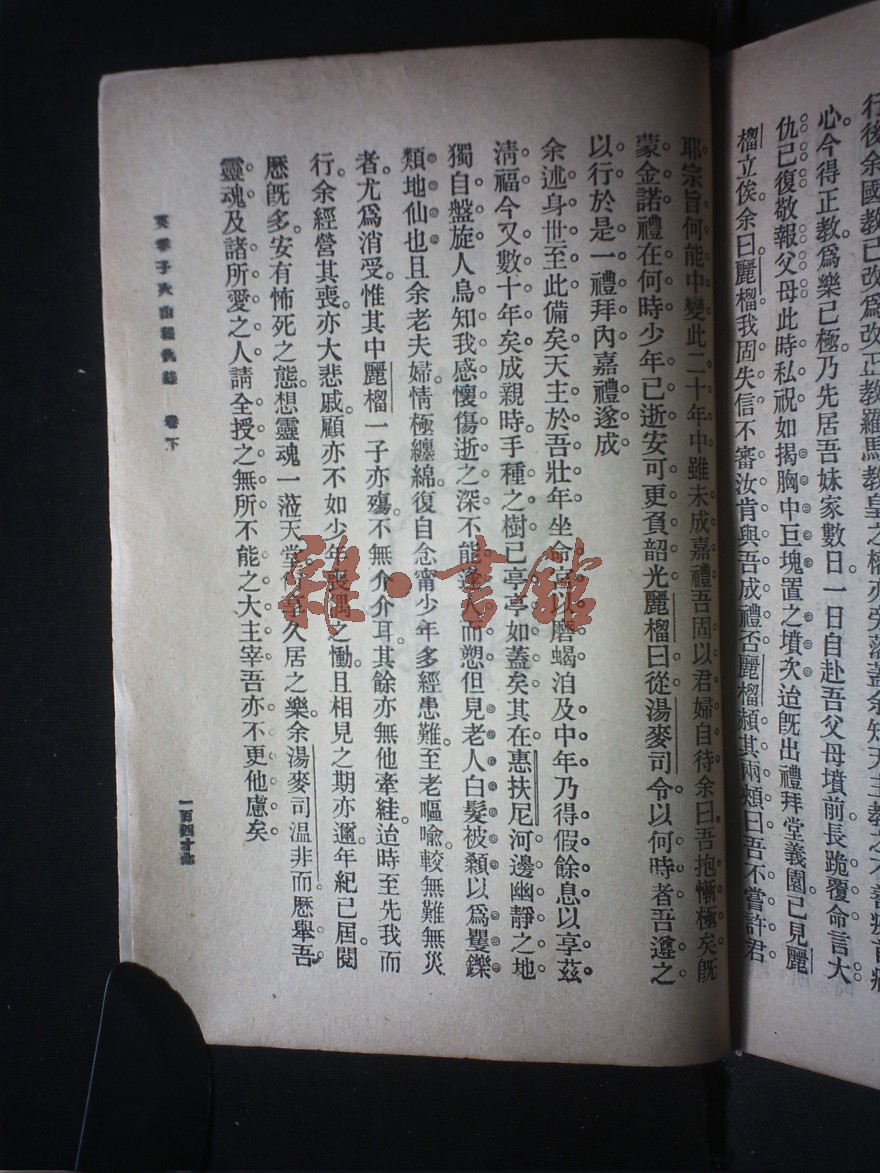 行後余國教已改爲改正教羅馬教皇之權亦旁落蓋余知天主教之不善
心今得正教爲樂已極乃先居吾妹家數日一日自赴吾父母墳前長跪覆命言大
仇已復敬報父母此時私祝如揭胸中巨塊置之墳次迨既出禮拜堂義園已見麗
榴立俟余曰麗榴我固失信不審汝肯與吾成禮否麗榴頳其兩頰曰吾不嘗許君
耶宗旨何能中變此二十年中雖未成嘉禮吾固以君婦自待余曰吾抱慚極矣既
蒙金諾禮在何時少年已逝安可更負韶光麗榴曰從湯麥司令以何時者吾遵之
以行於是一禮拜內嘉禮遂成
余述身世至此備矣天主於吾壯年坐命宮以磨蝎洎及中年乃得假餘息以享茲
清福今又數十年矣成親時手種之樹已亭亭如蓋矣其在惠扶尼河邊幽靜之地
獨自盤旋人烏知我感懷傷逝之深不能逢人而愬但見老人白髮被顙以爲矍鑠
類地仙也且余老夫婦情極纏綿復自念甯少年多經患難至老嘔喩較無難無災
者尤爲消受惟其中麗榴一子亦殤不無介介耳其餘亦無他牽絓迨時至先我而
行余經營其喪亦大悲戚顧亦不如少年喪偶之慟且相見之期亦邇年紀已屆閱
歷既多安有怖死之態想靈魂一蒞天堂久居之樂余湯麥司溫非而歷舉吾
靈魂及諸所愛之人請全授之無所不能之大主宰吾亦不更他慮矣
英孝子火山報仇錄 卷下
一百四十
雜·書館